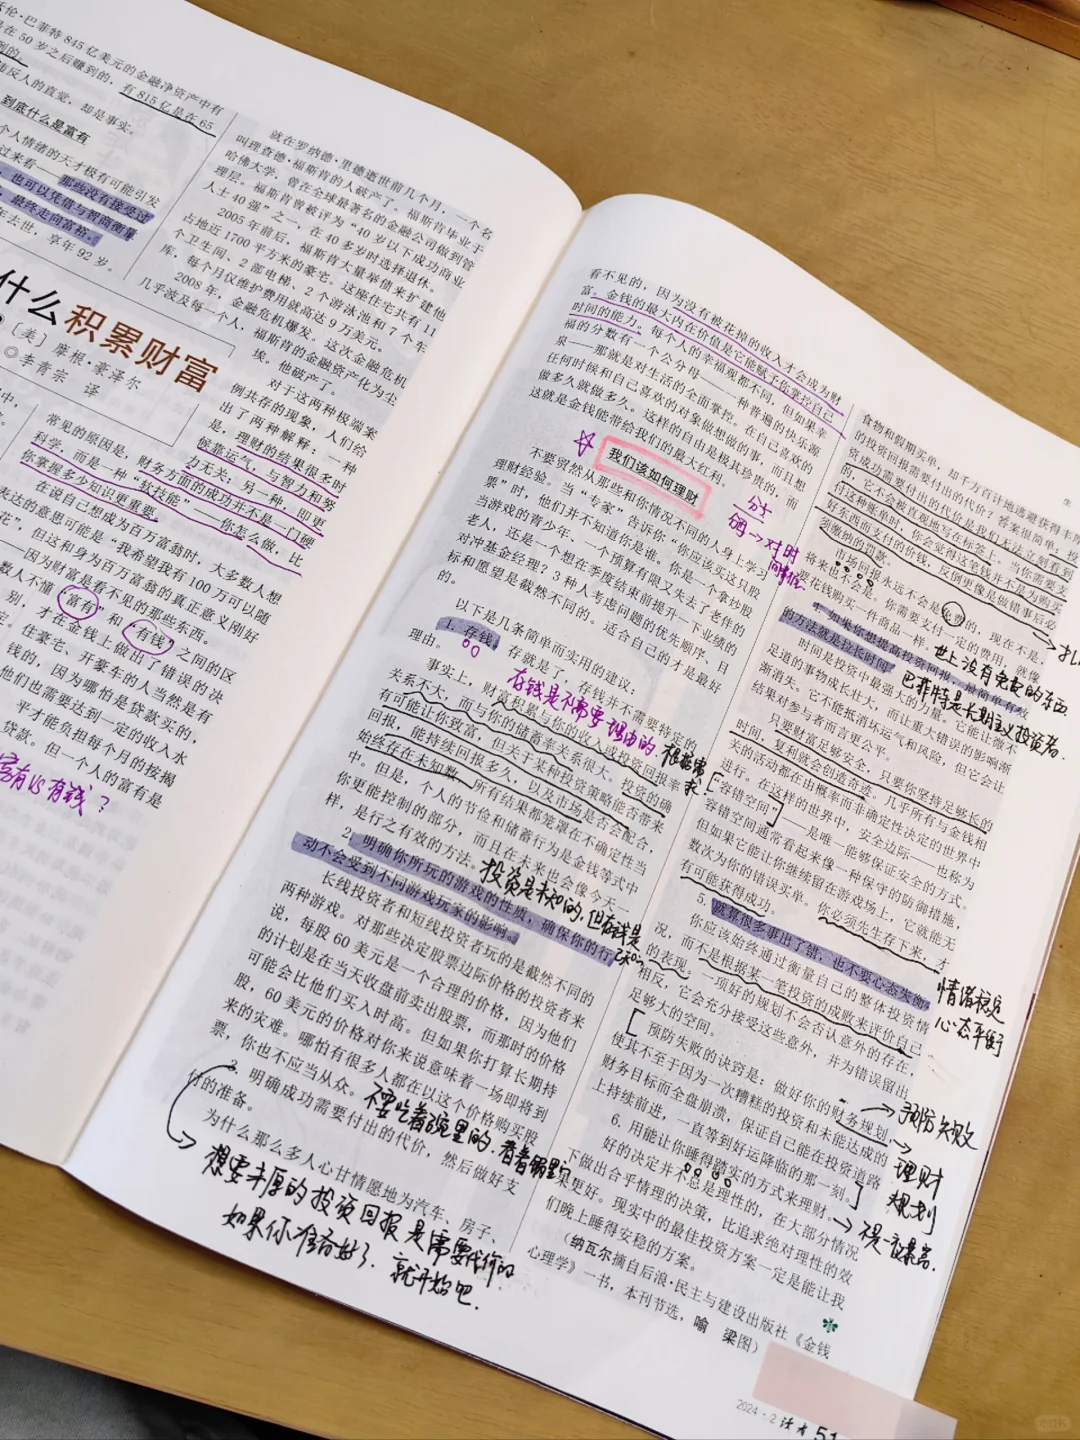 伦·巴菲特845亿美元的金融净资产中有
在50岁之后赚到的，有815亿是在65
到的。
违反人的直觉，却是事实。
到底什么是富有
个人情绪的天才极有可能引发
过来看——那些没有接受过
，也可以凭借与智商衡量
，最终走向富裕。
年去世，享年92岁。
什么积累财富
［美］摩根·豪泽尔
◎李青宗 译
常见的原因是，财务方面的成功并不是一门硬
科学，而是一种“软技能”——你怎么做，比
你掌握多少知识更重要。
在说自己想成为百万富翁时，大多数人想
表达的意思可能是“我希望我有100万可以随
花”，但这和身为百万富翁的真正意义刚好
——因为财富是看不见的那些东西。
数人不懂“富有”和“有钱”之间的区
别，才在金钱上做出了错误的决
。住豪宅、开豪车的人当然是有
钱的，因为哪怕是贷款买的，
他们也需要达到一定的收入水
平才能负担每个月的按揭
贷款。但一个人的富有是
富有VS有钱？
就在罗纳德·里德逝世前几个月，一个名
叫理查德·福斯肯的人破产了。福斯肯毕业于
哈佛大学，曾在全球最著名的金融公司做到管
理层。福斯肯曾被评为“40岁以下成功商业
人士40强”之一，在40多岁时选择退休。
2005年前后，福斯肯大量举债来扩建他
占地近1700平方米的豪宅。这座住宅共有11
个卫生间、2部电梯、2个游泳池和7个车
库，每个月仅维护费用就高达9万美元。
2008年，金融危机爆发。这次金融危机
几乎波及每一个人，福斯肯的金融资产化为尘
埃。他破产了。
对于这两种极端案
例共存的现象，人们给
出了两种解释：一种
是，理财的结果很多时
候靠运气，与智力和努
力无关；另一种，即更
看不见的，因为没有被花掉的收入才会成为财
富。金钱的最大内在价值是它能赋予你掌控自己
时间的能力。每个人的幸福观都不同，但如果幸
福的分数有一个公分母——一种普遍的快乐源
泉——那就是对生活的全面掌控。在自己喜欢的
任何时候和自己喜欢的对象做想做的事，而且想
做多久就做多久。这样的自由是极其珍贵的，而
这就是金钱能带给我们的最大红利。
我们该如何理财
不要贸然从那些和你情况不同的人身上学习
理财经验。当“专家”告诉你“你应该买这只股
票”时，他们并不知道你是谁。你是一个拿炒股
当游戏的青少年、一个预算有限又失去了老伴的
老人，还是一个想在季度结束前提升一下业绩的
对冲基金经理？3种人考虑问题的优先顺序、目
标和愿望是截然不同的。适合自己的才是最好
的。
以下是几条简单而实用的建议：
1. 存钱。存就是了，存钱并不需要特定的
理由。
存钱是不需要理由的.根据需求
事实上，财富积累与你的收入或投资回报率
关系不大，而与你的储蓄率关系很大。投资的确
有可能让你致富，但关于某种投资策略能否带来
回报，能持续回报多久，以及市场是否会配合，
始终存在未知数，所有结果都笼罩在不确定性当
中。但是，个人的节俭和储蓄行为是金钱等式中
你更能控制的部分，而且在未来也会像今天一
样，是行之有效的方法。
投资是未知的,但存钱是已知
2. 明确你所玩的游戏的性质，确保你的行
动不会受到不同游戏玩家的影响。
长线投资者和短线投资者玩的是截然不同的
两种游戏。对那些决定股票边际价格的投资者来
说，每股60美元是一个合理的价格，因为他们
的计划是在当天收盘前卖出股票，而那时的价格
可能会比他们买入时高。但如果你打算长期持
股，60美元的价格对你来说意味着一场即将到
来的灾难。哪怕有很多人都在以这个价格购买股
票，你也不应当从众。
不要吃着碗里的,看着锅里
3. 明确成功需要付出的代价，然后做好支
付的准备。
为什么那么多人心甘情愿地为汽车、房子、
想要丰厚的投资回报是需要代价的
如果你准备好了.就开始吧.
食物和假期买单，却千方百计地逃避获得丰厚
的投资回报需要付出的代价？答案很简单：投
资成功需要付出的代价是我们无法立刻看到
的，它不会被直观地写在标签上。当你需要支
付这种账单时，你会觉得这笔钱并不是为购买
好东西而支付的价钱，反倒更像是做错事后必
须缴纳的罚款。
市场回报永远不会是免费的，现在不是，
将来也不会是。你需要支付一定的费用，就像
要花钱购买一件商品一样。
世上没有免费的东西.
4. 如果你想提高投资回报，最简单有效
的方法就是拉长时间。
巴菲特是长期主义投资者.
时间是投资中最强大的力量。它能让微不
足道的事物成长壮大，而让重大错误的影响渐
渐消失。它不能抵消坏运气和风险，但它会让
结果对参与者而言更公平。
只要财富足够安全，只要你坚持足够长的
时间，复利就会创造奇迹。几乎所有与金钱相
关的活动都在由概率而非确定性决定的世界中
进行。在这样的世界中，安全边际——也称为
“容错空间”——是唯一能够保证安全的方式。
容错空间通常看起来像一种保守的防御措施，
但如果它能让你继续留在游戏场上，它就能无
数次为你的错误买单。你必须先生存下来，才
有可能获得成功。
5. 就算很多事出了错，也不要心态失衡。
你应该始终通过衡量自己的整体投资情
况，而不是根据某一笔投资的成败来评价自己
的表现。一项好的规划不会否认意外的存在，
相反，它会充分接受这些意外，并为错误留出
足够大的空间。
情绪稳定
心态平衡
预防失败的诀窍是：做好你的财务规划，
使其不至于因为一次糟糕的投资和未能达成的
财务目标而全盘崩溃，保证自己能在投资道路
上持续前进，一直等到好运降临的那一刻。
→预防失败
→理财规划
6. 用能让你睡得踏实的方式来理财。
好的决定并不总是理性的，在大部分情况
下做出合乎情理的决策，比追求绝对理性的效
果更好。现实中的最佳投资方案一定是能让我
们晚上睡得安稳的方案。
（纳瓦尔摘自后浪·民主与建设出版社《金钱
心理学》一书，本刊节选，喻 梁图）
2024·2 读者 51
小红书